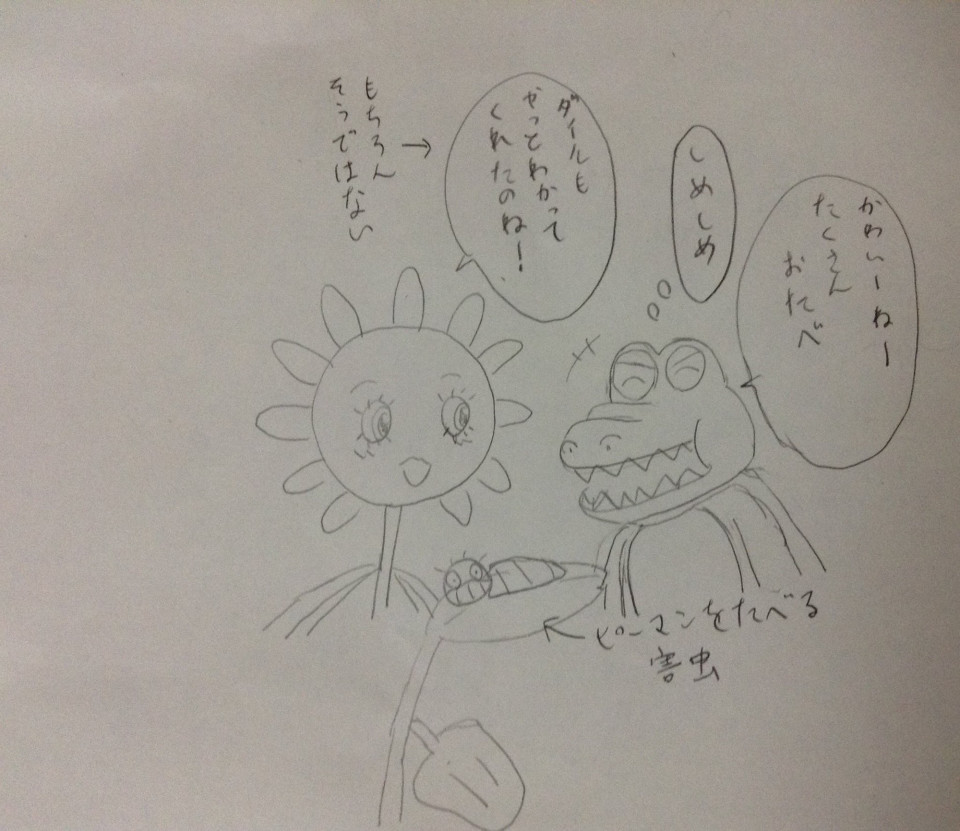 かわいーねー
たくさん
おたべ
しめしめ
ダイルも
やっとわかって
くれたのね!
もちろん
そうではない
ピーマンをたべる
害虫